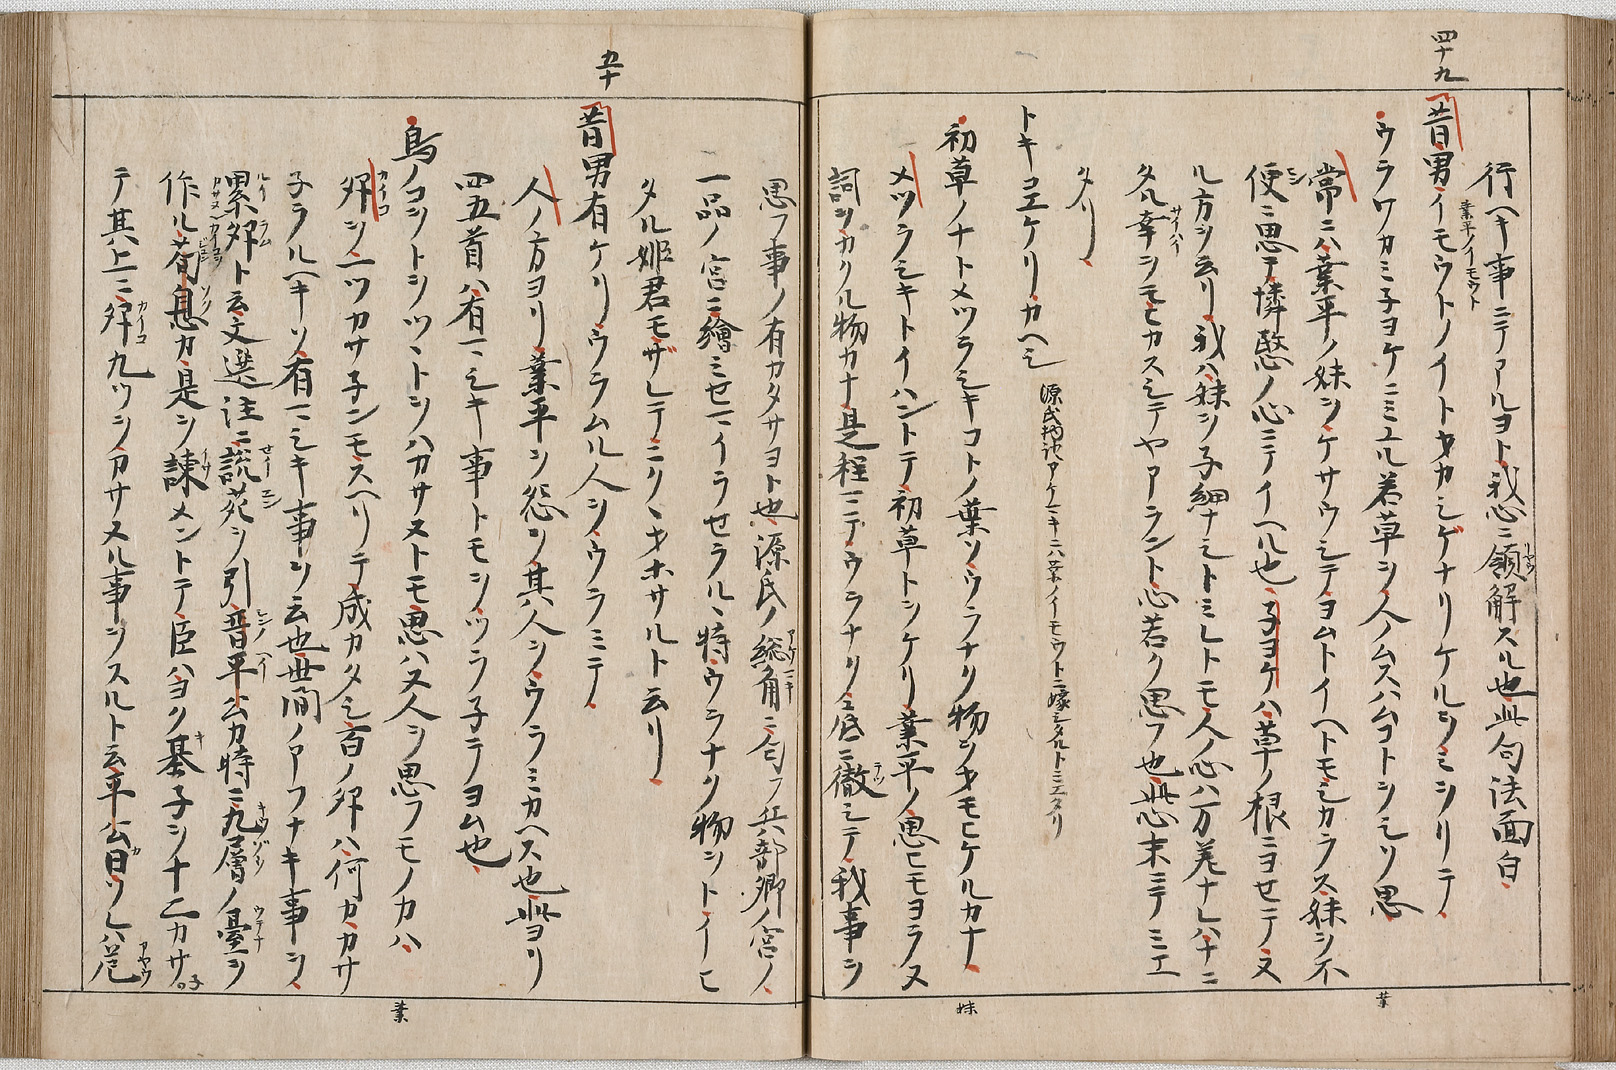 四十九
行ヘキ事ニテアルヨト我心ニ領解スル也此句法面白
昔男イモウトノイトオカシゲナリケルヲミヲリテ
業平ノイモウト
ウラワカミ子ヨケニミユル若草ヲ人ノムスハムコトヲシソ思
常ニハ業平ノ妹ヲケサウシテヨムトイヘトモシカラス妹ヲ不
便ニ思テ憐愍ノ心ニテイヘル也子ヨケハ草ノ根ニヨセテ又
ル方ヲ云リ我ハ妹ヲ子細ナシトミレトモ人ノ心ハ万差ナレハナニ
タル幸ヲモヒカスシテヤアラント心苦ク思フ也此心末ニテミエ
タリ
トキコエケリカヘシ
源氏物語アケマキニハ業ノイモウトニ嫁シタルトミエタリ
初草ノナトメツラシキコトノ葉ソウラナク物ヲオモヒケルカナ
メツラシキトイハントテ初草トヲケリ業平ノ思ヒモヨラヌ
詞ヲカクル物カナ是程マテウラナク心底ニ徹シテ我事ヲ
業
妹
五十
思フ事ノ有カタサヨト也源氏ノ総角ニ匂フ兵部卿ノ宮ノ
一品ノ宮ニ繪ミセマイラセラルヽ時ウラナク物ヲトイヒ
タル姫君モザレテニクヽオホサルト云リ
昔男有ケリウラムル人ヲウラミテ
人ノ方ヨリ業平ヲ怨ヲ其人ヲウラミカヘス也此ヨリ
四五首ハ有マシキ事トモヲツラ子テヨム也
鳥ノコヲトヲツヽトヲハカサヌトモ思ハヌ人ヲ思フモノカハ
卵ヲ一ツカサ子ンモスヘリテ成カタシ百ノ卵ハ何カカサ
子ラルヘキソ有マシキ事ヲ云也世間ノアフナキ事ヲ
累卵ト云文選注ニ説苑ヲ引晋平公カ時ニ九層ノ臺ヲ
作ル荀息カ是ヲ諫メントテ臣ハヨク基子ヲ十二カサ子
テ其上ニ卵九ツヲカサヌル事ヲスルト云平公曰ソレハ危
業